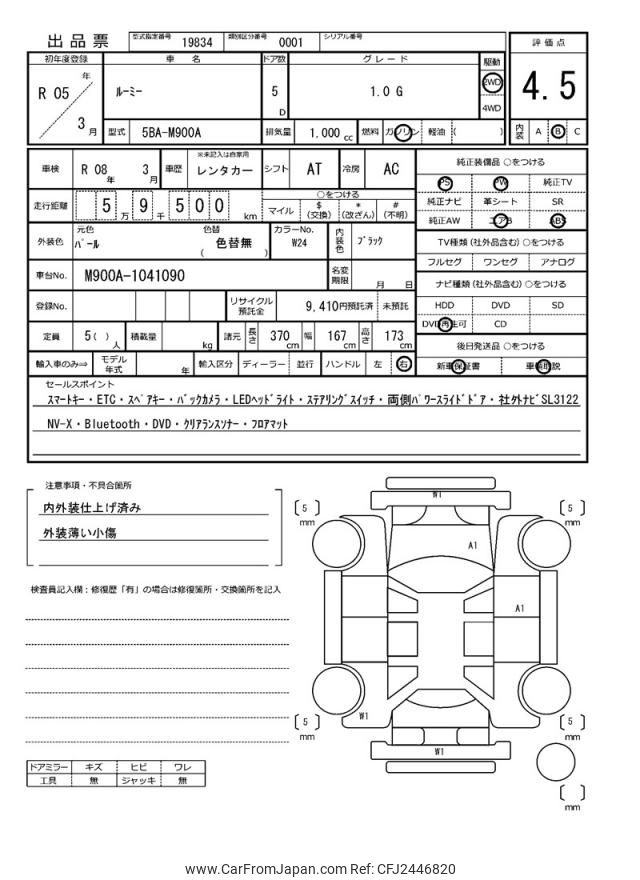 出品票 型式指定番号 19834 類別区分番号 0001 シリアル番号
評価点
4.5
内装 A B C
初年度登録 車名 ドア数 グレード 駆動
R 05 年 3 月 ルーミー 5 D 1.0 G 2WD 4WD
型式 5BA-M900A 排気量 1.000 cc 燃料 ガソリン 軽油 ( )
車検 R 08 年 3 月 車歴 ※未記入は自家用 レンタカー シフト AT 冷房 AC
走行距離 5 万 9 千 5 0 0 km ○をつける
マイル $ (交換) * (改ざん) # (不明)
外装色 元色 パール 色替 ( 色替無 ) カラーNo. W24 内装色 ブラック
車台No. M900A-1041090 名変期限 月 日
登録No. リサイクル預託金 9.410円預託済 未預託
定員 5( ) 人 積載量 kg 諸元 長さ 370 cm 幅 167 cm 高さ 173 cm
輸入車のみ⇒ モデル年式 年 輸入区分 ディーラー 並行 ハンドル 左 右
純正装備品 ○をつける
PS PW 純正TV
純正ナビ 革シート SR
純正AW エアB ABS
TV種類(社外品含む) ○をつける
フルセグ ワンセグ アナログ
ナビ種類(社外品含む) ○をつける
HDD DVD SD
DVD再生可 CD
後日発送品 ○をつける
新車保証書 車輌取説
セールスポイント
スマートキー・ETC・スペアキー・バックカメラ・LEDヘッドライト・ステアリングスイッチ・両側パワースライドドア・社外ナビSL3122
NV-X・Bluetooth・DVD・クリアランスソナー・フロアマット
注意事項・不具合箇所
内外装仕上げ済み
外装薄い小傷
検査員記入欄：修復歴「有」の場合は修復箇所・交換箇所を記入
ドアミラー キズ ヒビ ワレ
工具 無 ジャッキ 無
W1
5 mm
5 mm
A1
A1
W1
5 mm
5 mm
W1
mm
www.CarFromJapan.com Ref: CFJ2446820